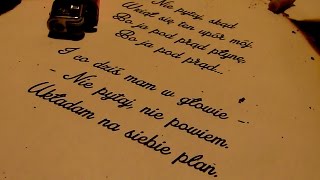 Nie pytaj, skąd
Wziął się ten upór mój.
Bo ja pod prąd płynę,
Bo ja pod prąd...
I co dziś mam w głowie -
- Nie pytaj, nie powiem.
Układam na siebie plan.